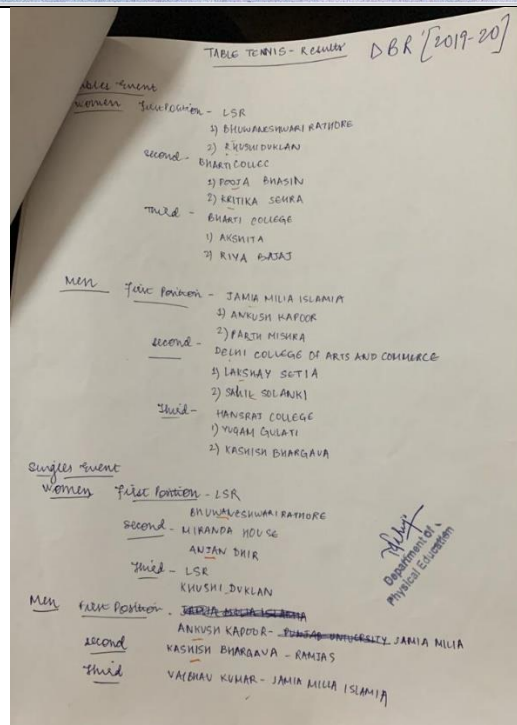 TABLE TENNIS - Results DBR [2019-20]
Doubles Event
Women First Position - LSR
1) BHUWANESHWARI RATHORE
2) KHUSHI DUKLAN
Second - BHARTI COLLEGE
1) POOJA BHASIN
2) KRITIKA SEHRA
Third - BHARTI COLLEGE
1) AKSHITA
2) RIYA BAJAJ
Men First Position - JAMIA MILIA ISLAMIA
1) ANKUSH KAPOOR
2) PARTH MISHRA
second - DELHI COLLEGE OF ARTS AND COMMERCE
1) LAKSHAY SETIA
2) SAHIL SOLANKI
Third - HANSRAJ COLLEGE
1) YUGAM GULATI
2) KASHISH BHARGAVA
Singles Event
Women First Position - LSR
BHUWANESHWARI RATHORE
Second - MIRANDA HOUSE
ANJAN DHIR
Third - LSR
KHUSHI DUKLAN
Department of
Physical Education
Men First Position - JAMIA MILIA ISLAMIA
ANKUSH KAPOOR - PUNJAB UNIVERSITY JAMIA MILIA
second KASHISH BHARGAVA - RAMJAS
Third VAIBHAV KUMAR - JAMIA MILLIA ISLAMIA